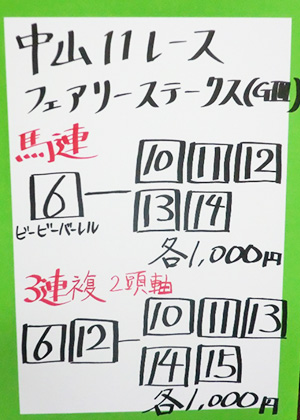 中山11レース
フェアリーステークス(GⅢ)
馬連
6-10 11 12
13 14
ビービーバーレル
各1,000円
3連複 2頭軸
6 12-10 11 13
14 15
各1,000円